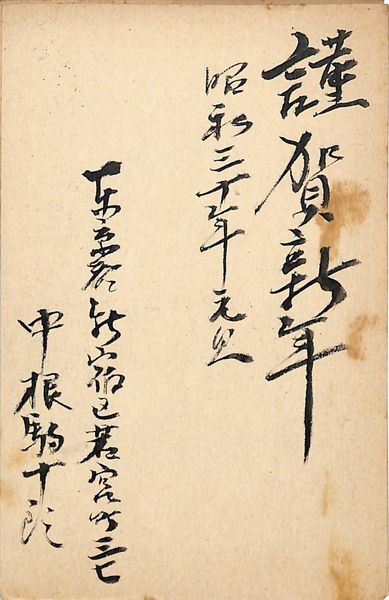 謹賀新年
昭和三十年元旦
東京都新宿区若宮町三七
中根駒十郎